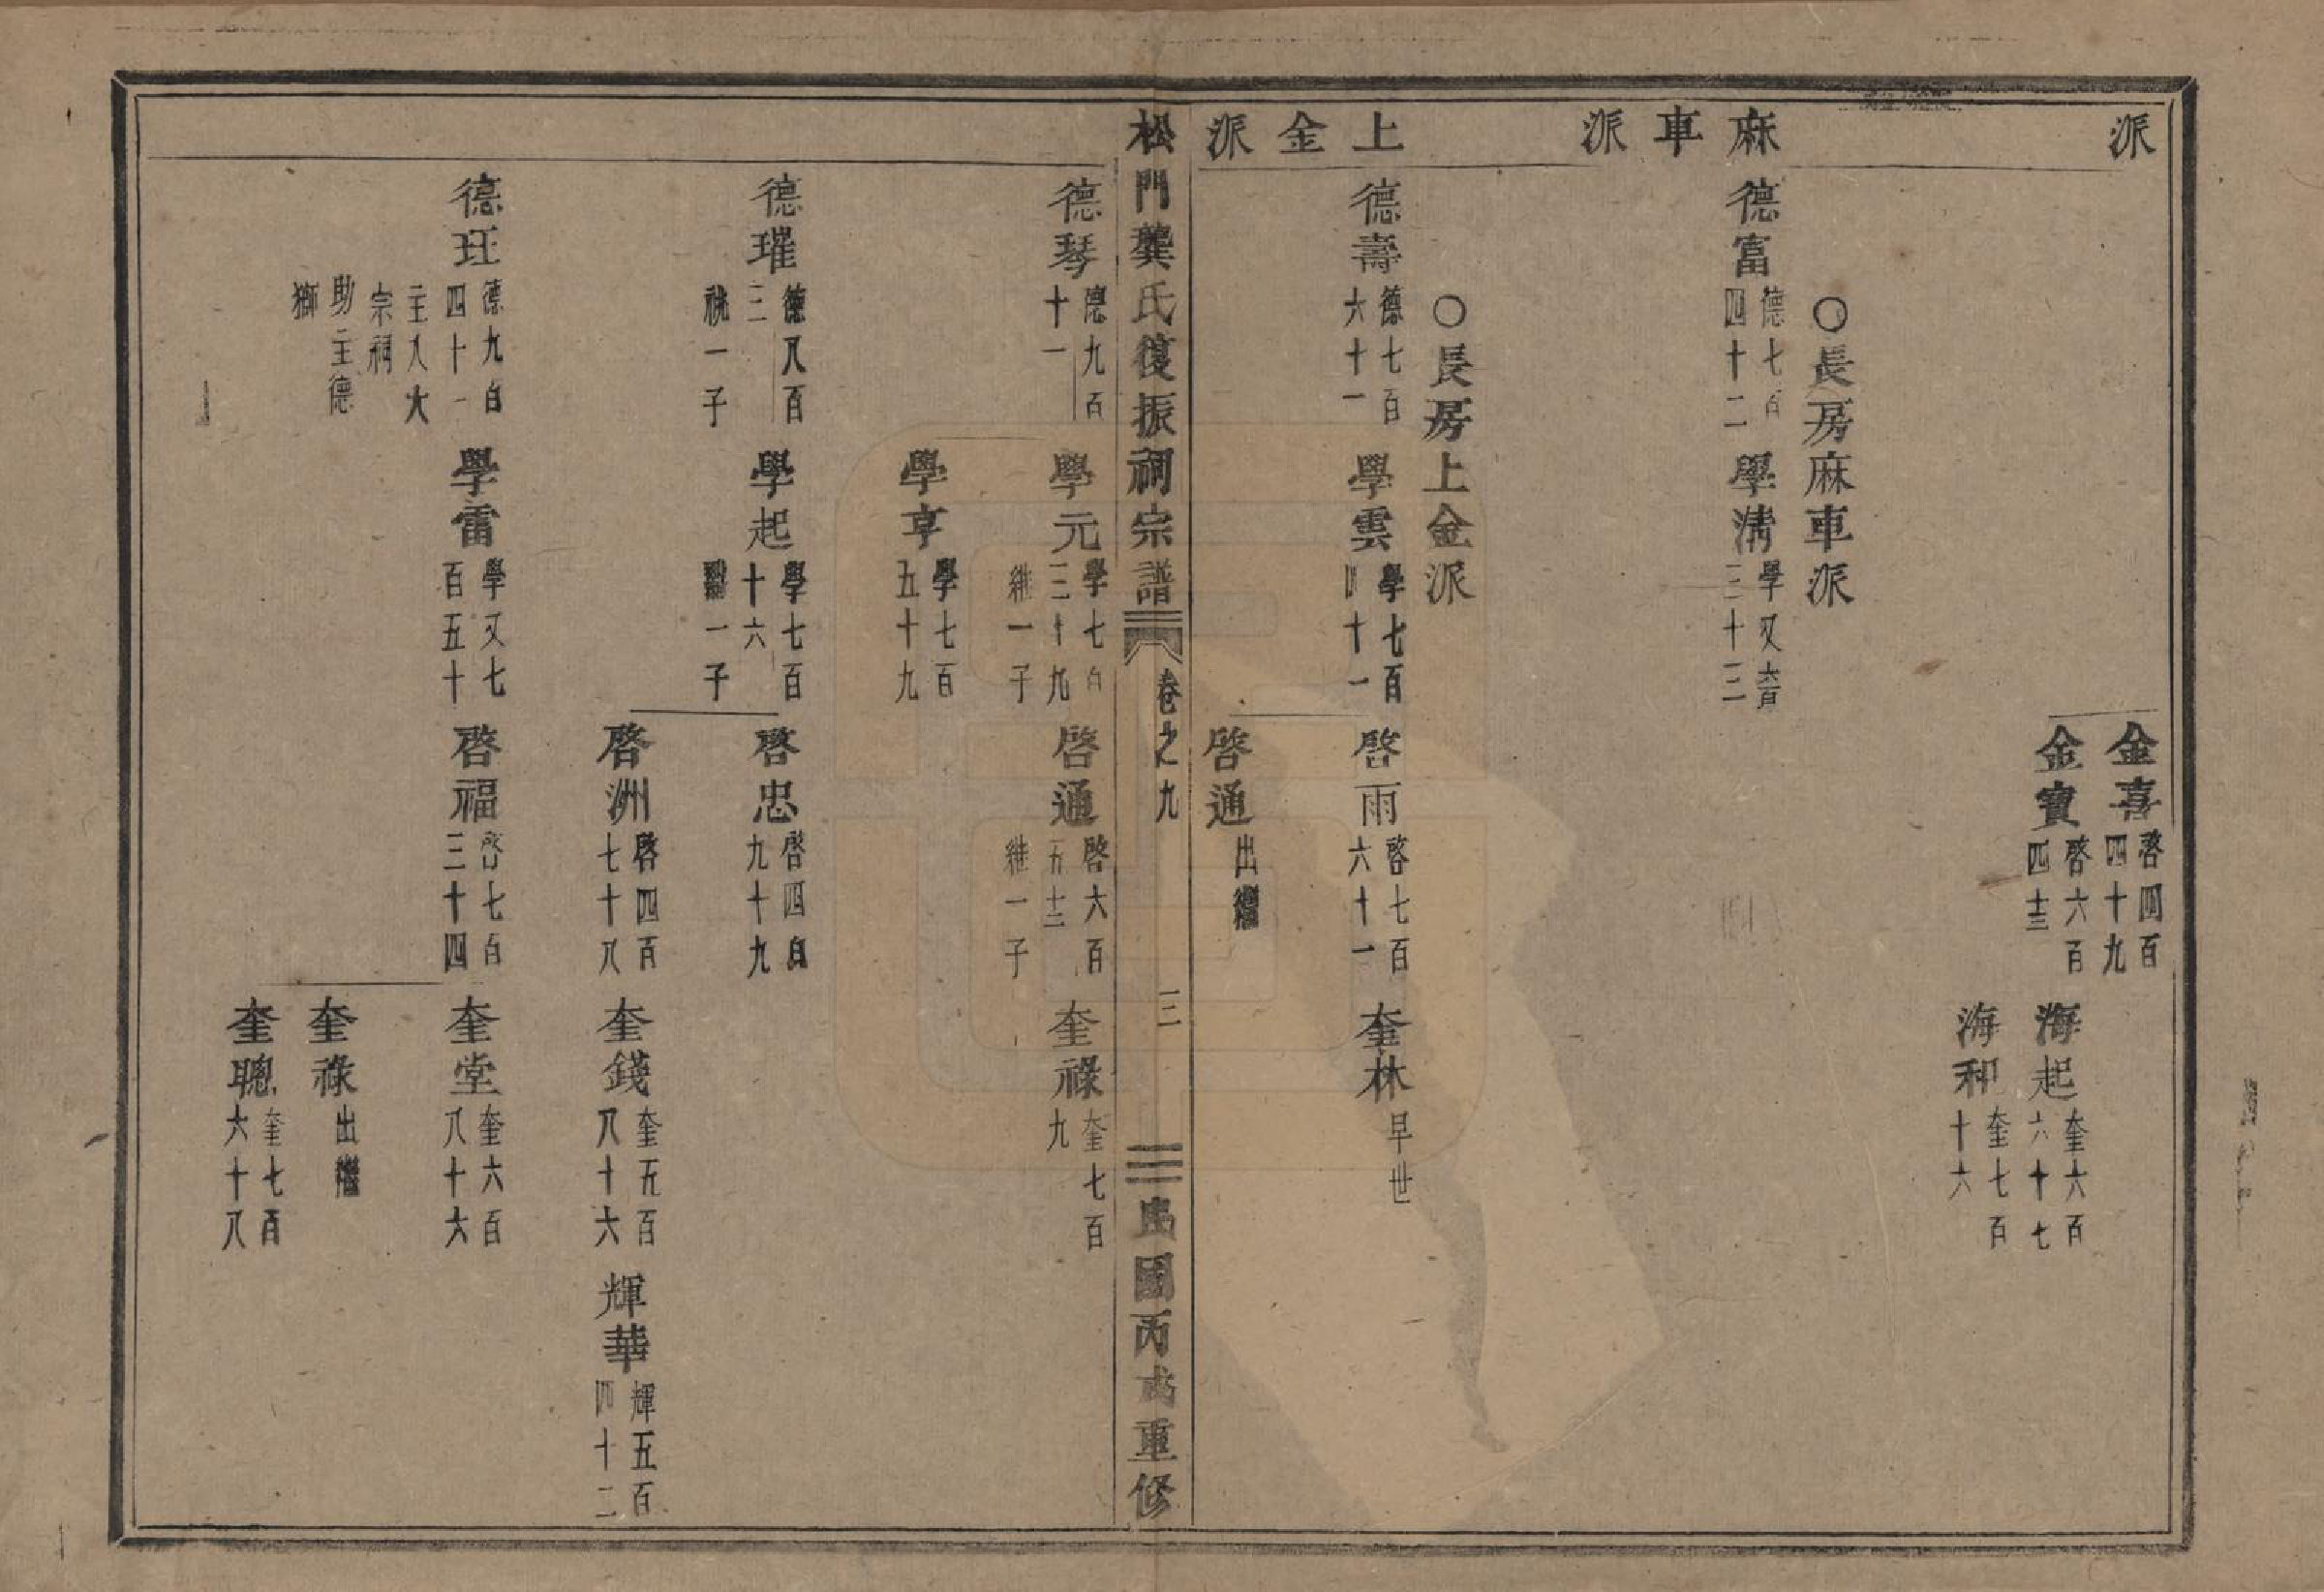 派
金喜 啓四百四十九
金寶 啓六百四十三
海起 奎六百六十七
海和 奎七百十六
麻車派
○長房麻車派
德富 德七百四十二
學淸 學又六百三十三
上金派
○長房上金派
德壽 德七百六十一
學雲 學七百四十一
啓雨 啓七百六十一
奎林 早世
啓通 出繼
松門龔氏復振祠宗譜 卷之九 三 民國丙戌重修
德琴 德九百十一
學元 學七百三十九 繼一子
啓通 啓六百五十二 繼一子
奎祿 奎七百九
學亨 學七百五十九
德璀 德八百三 祧一子
學起 學七百十六 繼一子
啓忠 啓四百九十九
啓洲 啓四百七十八
奎錢 奎五百八十六
輝華 輝五百四十二
德玨 德九百四十一 主入大宗祠 助主德獅
學雷 學又七百五十
啓福 啓七百三十四
奎堂 奎六百八十六
奎祿 出繼
奎聰 奎七百六十八